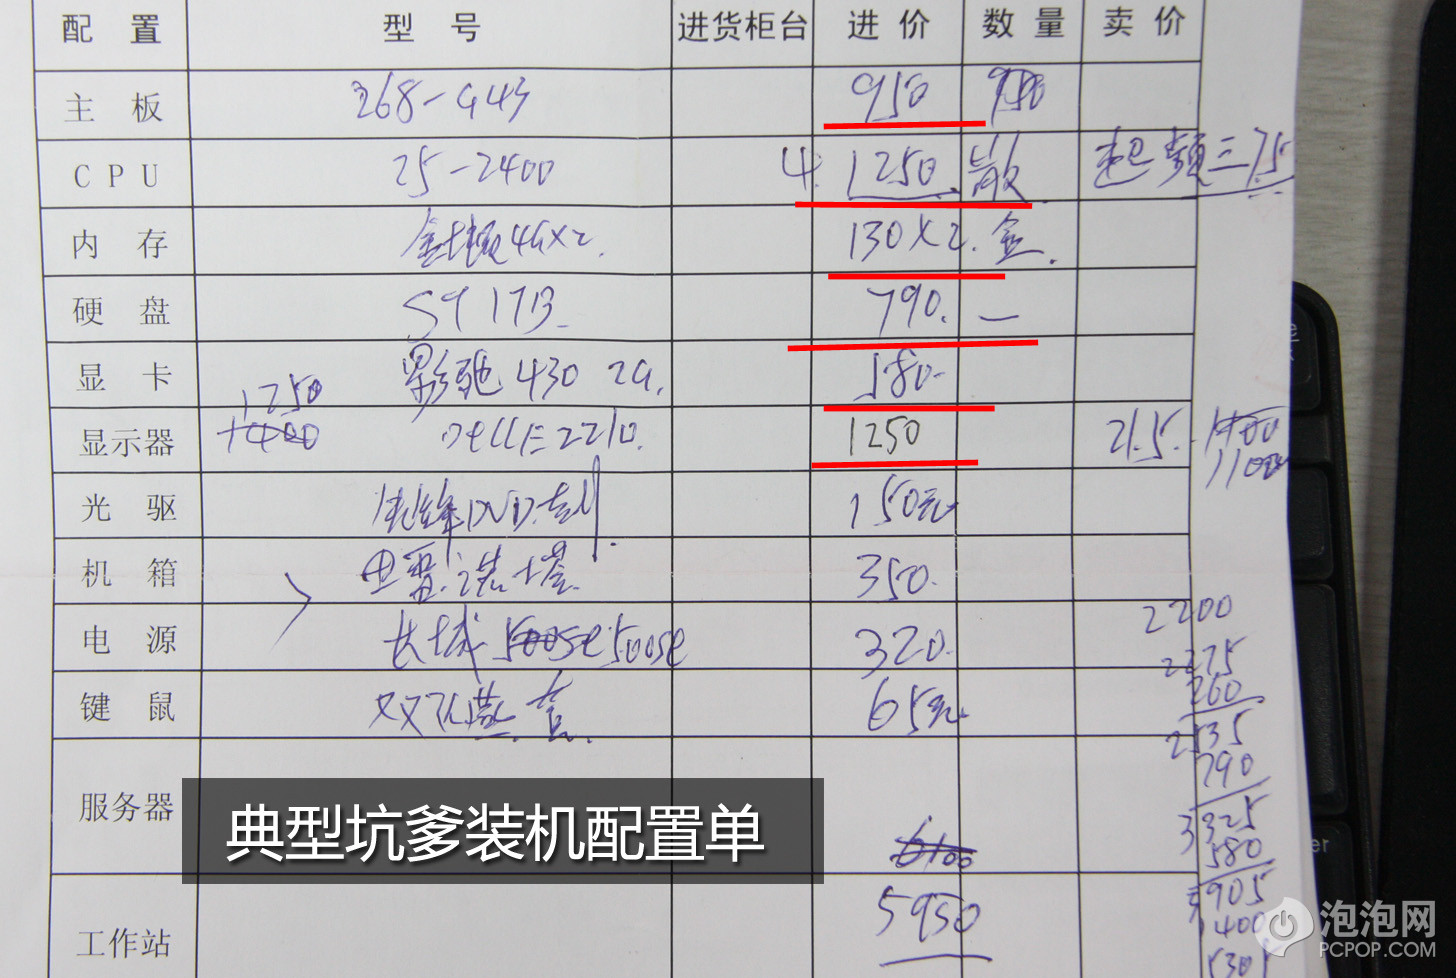 配 置 型 号 进货柜台 进 价 数 量 卖 价
主 板 268-G43 950
CPU i5-2400 4. 1250. 散 超频三 75
内 存 金士顿4G×2. 130×2. 金.
硬 盘 ST 1TB 790. 一
显 卡 影驰 430 2G. 580-
1250
显示器 1400 DELL E2210. 1250 21.5. 1400
1100
光 驱 先锋DVD.刻 150元
机 箱 350.
电 源 长城 500SE 500SE 320.
键 鼠 双飞燕 套. 65元.
2200
2275
260
2535
790
3325
580
3905
1400
5305
服务器
典型坑爹装机配置单
6100
5950
工作站
泡泡网
PCPOP.COM